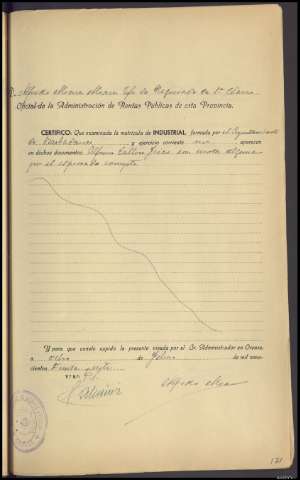 D. Alfredo Mera Jefe de Negociado de 1ª Clase
Oficial de la Administración de Rentas Públicas de esta Provincia.
CERTIFICO: Que examinada la matrícula de INDUSTRIAL, formada por el Ayuntamiento
de Barbadanes y ejercicio corriente no aparecen
en dichos documentos Alfonso con cuota alguna
por el expresado concepto
Y para que conste expido la presente visada por el Sr. Administrador en Orense,
a ocho de de mil nove-
cientos treinta y siete
V.º B.º
Alfredo Mera
121